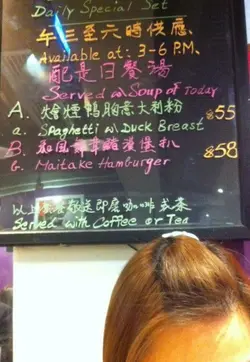 Daily Special Set
午三至六時供應、
Available at: 3-6 P.M.
配是日餐湯
Served w/ Soup of Today
A. 燴煙鴨胸意大利粉 $55
a. Spaghetti w/ Duck Breast
B. 和風舞茸雞漢堡扒 $58
b. Maitake Hamburger
以上套餐敬送即磨咖啡或茶
Served with Coffee or Tea